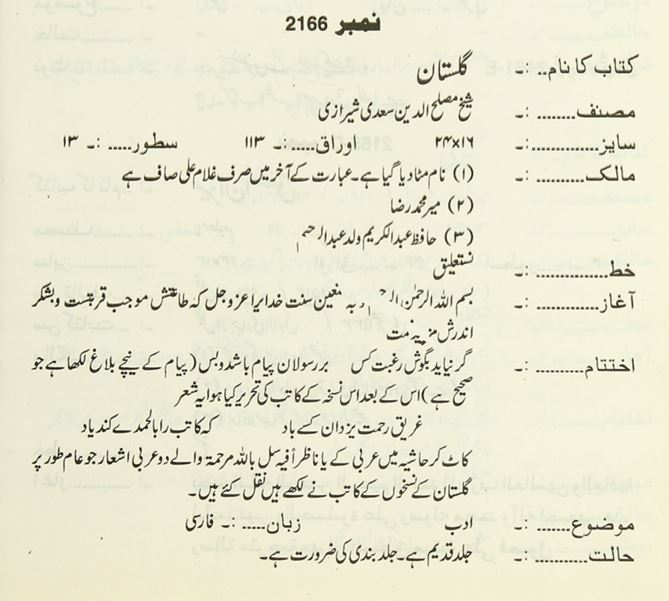 نمبر 2166
کتاب کا نام.. :۔ گلستان
مصنف........ :۔ شیخ مصلح الدین سعدی شیرازی
سایز........... :۔ ۲۴x۱۶ اوراق..... :۔ ۱۱۳ سطور..... :۔ ۱۳
مالک.......... :۔ (۱) نام مٹا دیا گیا ہے۔ عبارت کے آخر میں صرف غلام علی صاف ہے
(۲) میر محمد رضا
(۳) حافظ عبدالکریم ولد عبدالرحیم
خط............ :۔ نستعلیق
آغاز........... :۔ بسم اللہ الرحمٰن الرحیم وبہ نستعین سنت خدایرا عزوجل کہ طاعتش موجب قربتست وبشکر
اندرش مزید نعمت
اختتام.......... :۔ گر نیاید بگوش رغبت کس بر رسولان پیام باشد وبس (پیام کے نیچے بلاغ لکھا ہے جو
صحیح ہے) اس کے بعد اس نسخہ کے کاتب کی تحریر کیا ہوا یہ شعر
غریق رحمت یزدان کسے باد کہ کاتب را بالحمدے کند یاد
کاٹ کر حاشیہ میں عربی کے یا ناظراً فیہ سل باللہ مرحمۃ والے دو عربی اشعار جو عام طور پر
گلستان کے نسخوں کے کاتب نے لکھے ہیں نقل کئے ہیں۔
موضوع....... :۔ ادب زبان..... :۔ فارسی
حالت.......... :۔ جلد قدیم ہے۔ جلد بندی کی ضرورت ہے۔